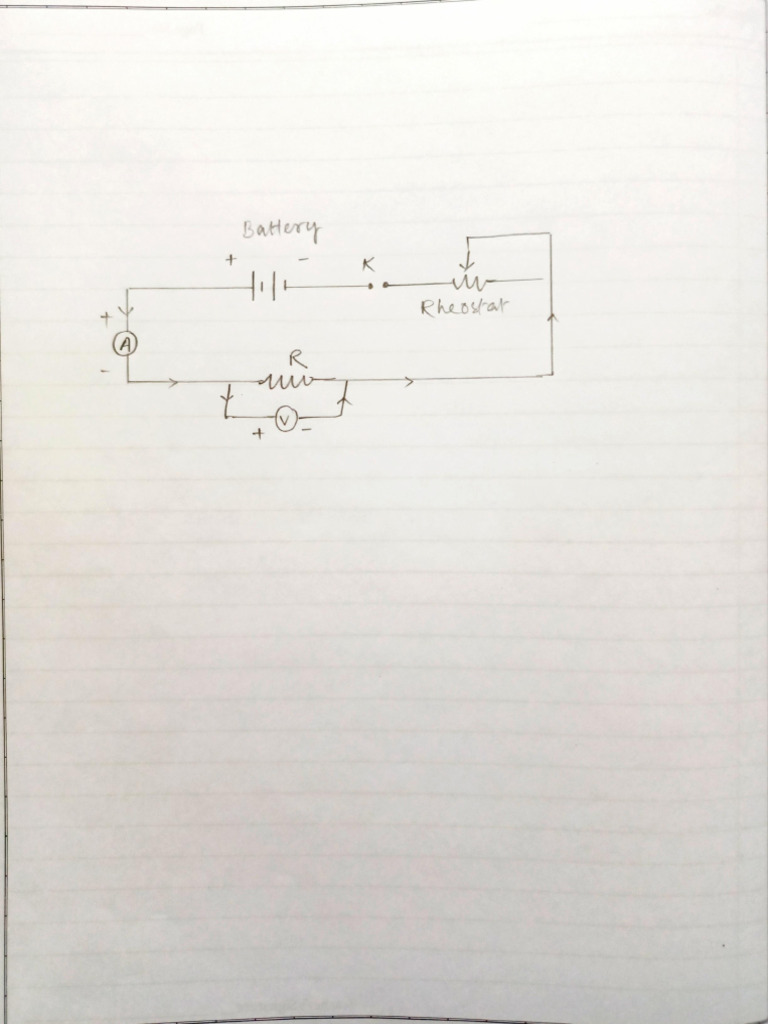 Battery
+ -
K
Rheostat
+
A
-
R
V
+ -